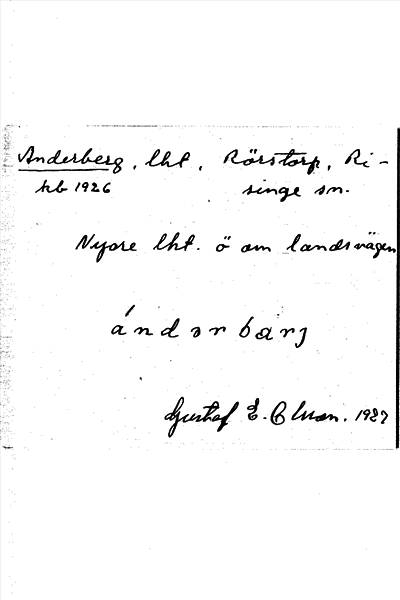 Anderberg, lht, Rörstorp, Ri-
kb 1926 singe sn.
Nyare lht. ö om landsvägen
ándərbarj
Gustaf E. 1927